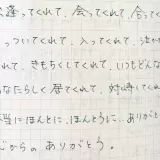 逢ってくれて、会ってくれて、合って
っついてくれて、入ってくれて、泣
れて、きもちくしてくれて、いつもどんな
なたらしく居てくれて、対峙してくれ
当にほんとに、ほんとうに...ありがと
心からのありがとう。